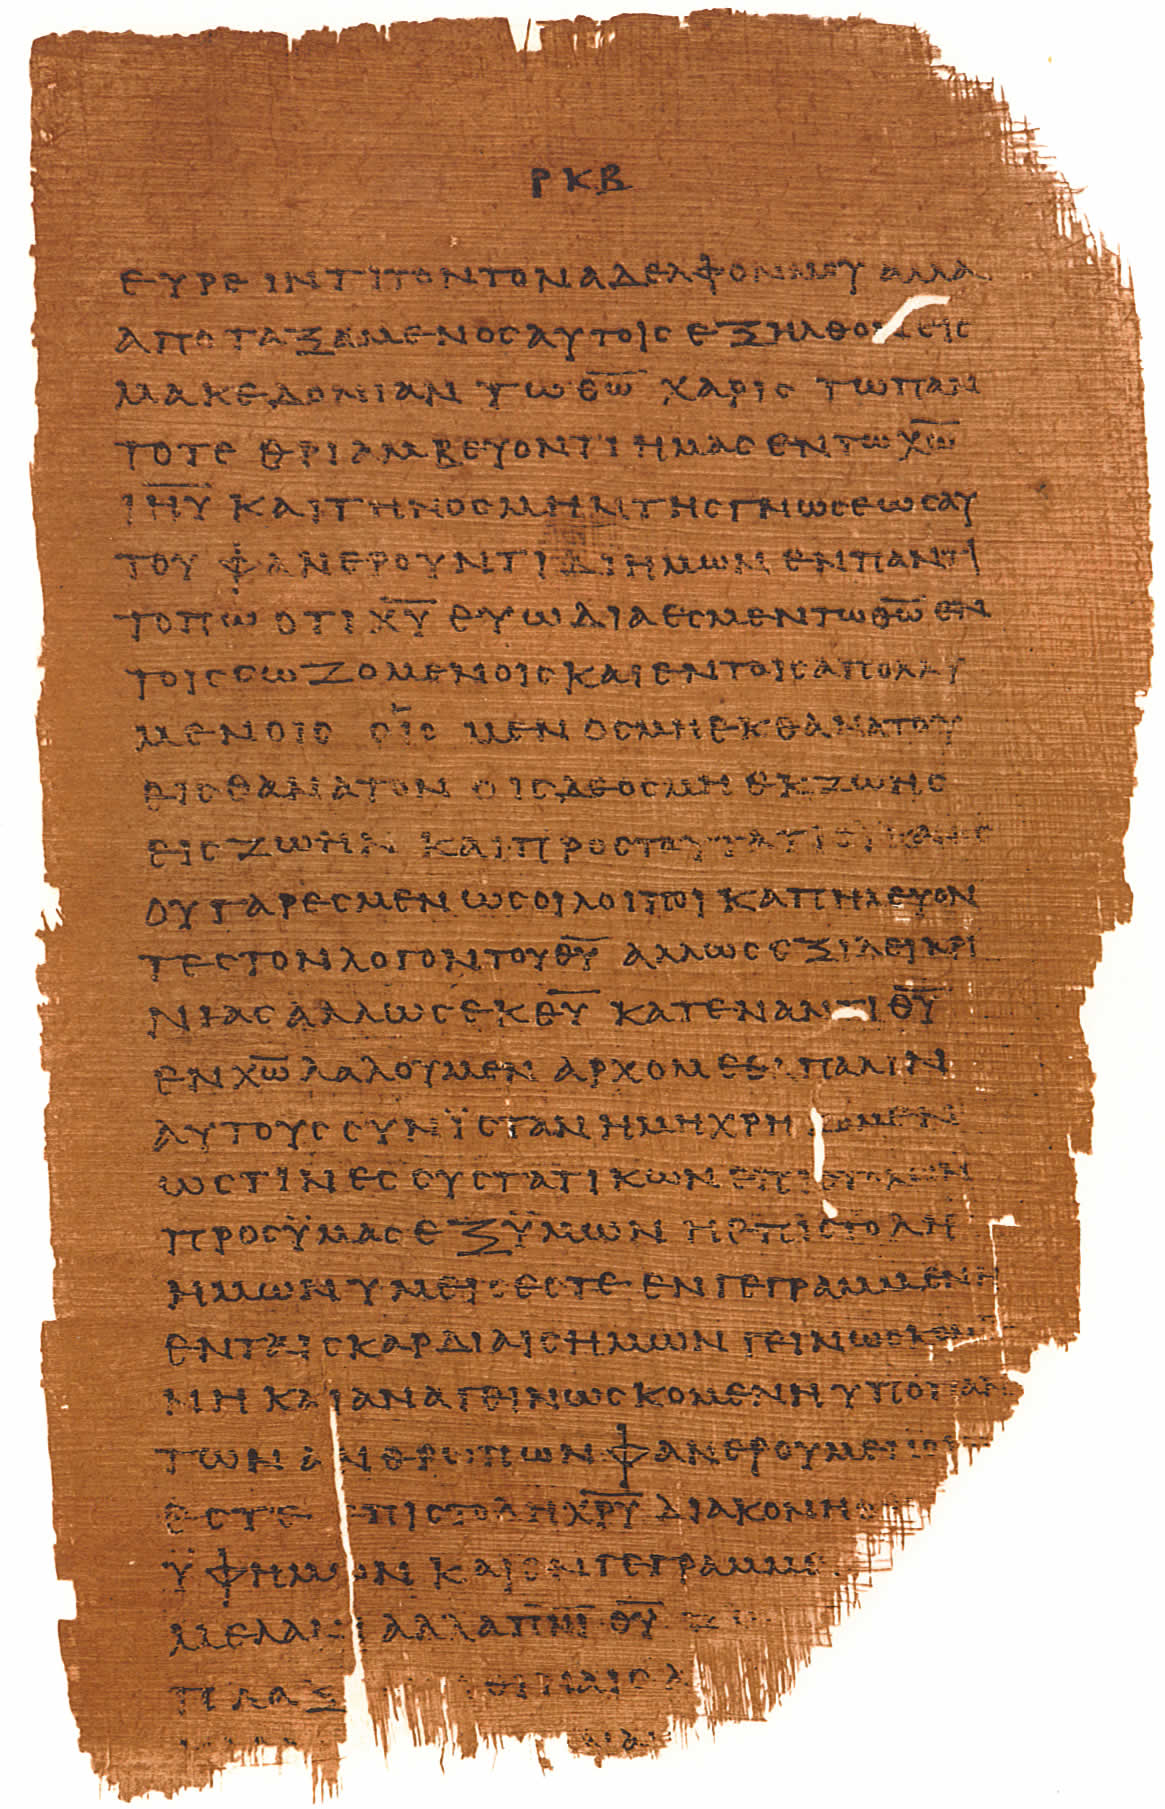 ΡΚΒ
ΕΥΡΕΙΝ ΤΙΤΟΝ ΤΟΝ ΑΔΕΛΦΟΝ ΜΟΥ ΑΛΛΑ
ΑΠΟΤΑΞΑΜΕΝΟΣ ΑΥΤΟΙΣ ΕΞΗΛΘΟΝ ΕΙΣ
ΜΑΚΕΔΟΝΙΑΝ ΤΩ ΘΩ̅ ΧΑΡΙΣ ΤΩ ΠΑΝ
ΤΟΤΕ ΘΡΙΑΜΒΕΥΟΝΤΙ ΗΜΑΣ ΕΝ ΤΩ ΧΩ̅
ΙΗΥ̅ ΚΑΙ ΤΗΝ ΟΣΜΗΝ ΤΗΣ ΓΝΩΣΕΩΣ ΑΥ
ΤΟΥ ΦΑΝΕΡΟΥΝΤΙ ΔΙ ΗΜΩΝ ΕΝ ΠΑΝΤΙ
ΤΟΠΩ ΟΤΙ ΧΥ̅ ΕΥΩΔΙΑ ΕΣΜΕΝ ΤΩ ΘΩ̅ ΕΝ
ΤΟΙΣ ΣΩΖΟΜΕΝΟΙΣ ΚΑΙ ΕΝ ΤΟΙΣ ΑΠΟΛΛΥ
ΜΕΝΟΙΣ ΟΙΣ ΜΕΝ ΟΣΜΗ ΕΚ ΘΑΝΑΤΟΥ
ΕΙΣ ΘΑΝΑΤΟΝ ΟΙΣ ΔΕ ΟΣΜΗ ΕΚ ΖΩΗΣ
ΕΙΣ ΖΩΗΝ ΚΑΙ ΠΡΟΣ ΤΑΥΤΑ ΤΙΣ ΙΚΑΝΟΣ
ΟΥ ΓΑΡ ΕΣΜΕΝ ΩΣ ΟΙ ΛΟΙΠΟΙ ΚΑΠΗΛΕΥΟΝ
ΤΕΣ ΤΟΝ ΛΟΓΟΝ ΤΟΥ ΘΥ̅ ΑΛΛ ΩΣ ΕΞ ΙΛΕΙΚΡΙ
ΝΙΑΣ ΑΛΛ ΩΣ ΕΚ ΘΥ̅ ΚΑΤΕΝΑΝΤΙ ΘΥ̅
ΕΝ ΧΩ̅ ΛΑΛΟΥΜΕΝ ΑΡΧΟΜΕΘΑ ΠΑΛΙΝ
ΑΥΤΟΥΣ ΣΥΝΪΣΤΑΝ Η ΜΗ ΧΡΗΖΟΜΕΝ
ΩΣ ΤΙΝΕΣ ΣΥΣΤΑΤΙΚΩΝ ΕΠΙΣΤΟΛΩΝ
ΠΡΟΣ ΫΜΑΣ ΕΞ ΫΜΩΝ Η ΕΠΙΣΤΟΛΗ
ΗΜΩΝ ΥΜΕΙΣ ΕΣΤΕ ΕΝΓΕΓΡΑΜΜΕΝΗ
ΕΝ ΤΑΙΣ ΚΑΡΔΙΑΙΣ ΗΜΩΝ ΓΕΙΝΩΣΚΟΜΕ
ΜΗ ΚΑΙ ΑΝΑΓΕΙΝΩΣΚΟΜΕΝΗ ΥΠΟ ΠΑΝ
ΤΩΝ ΑΝΘΡΩΠΩΝ ΦΑΝΕΡΟΥΜΕΝΟΙ
ΕΣΤΕ ΕΠΙΣΤΟΛΗ ΧΡΥ̅ ΔΙΑΚΟΝΗΘ
ΫΦ ΗΜΩΝ ΚΑΙ ΕΝΓΕΓΡΑΜΜΕ
ΜΕΛΑΝΙ ΑΛΛΑ ΠΝΙ̅ ΘΥ̅ Ζ
ΠΛΑΞ